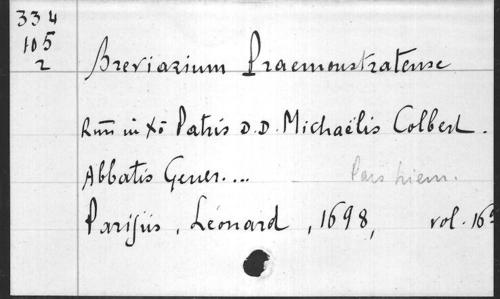 334
105
2
Breviarium Praemonstratense
Rmi in Xo Patris D.D. Michaëlis Colbert.
Abbatis Gener.... Pars hiem.
Parisiis, Léonard, 1698, vol. 16°